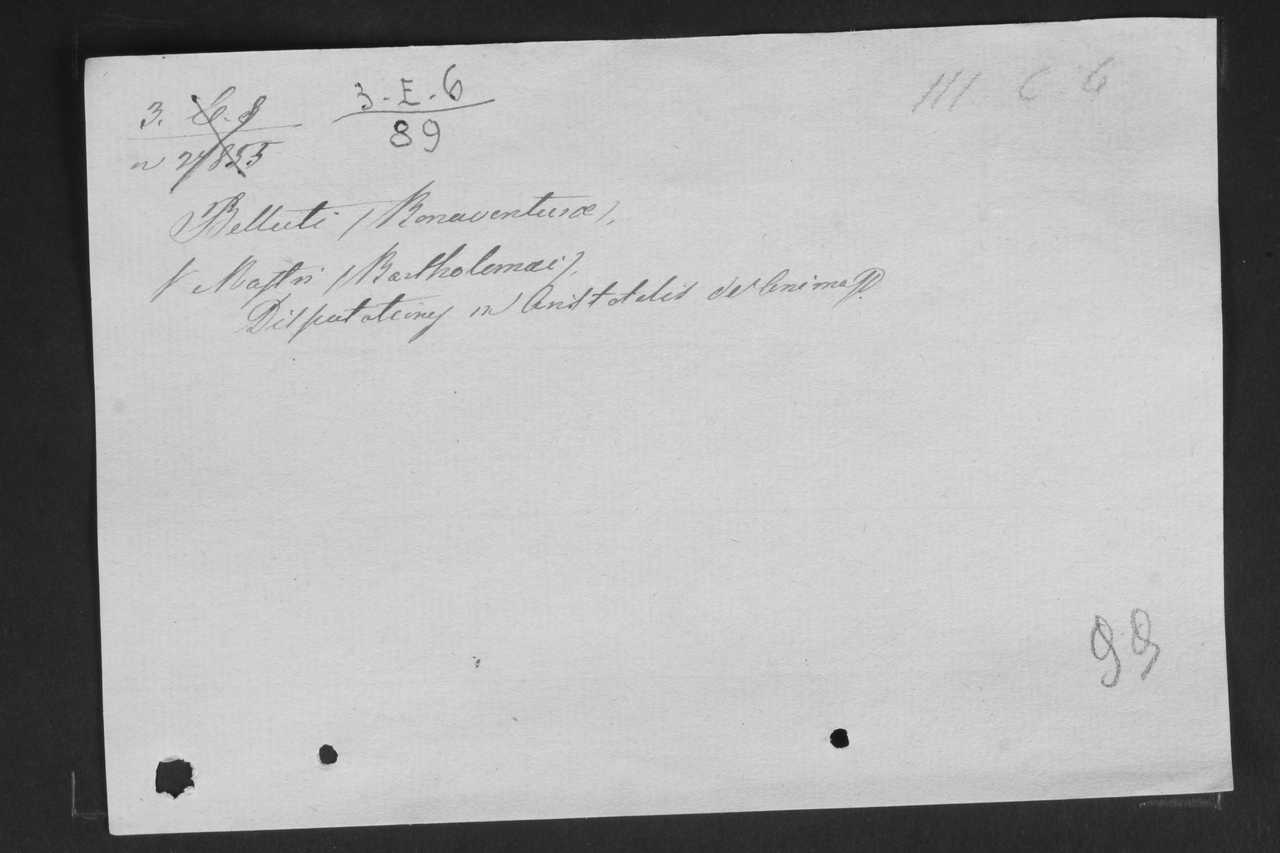 3. C. 8
n 27855
3-E-6
89
III C 6
Belluti (Bonaventuræ),
& Mastri (Bartholomæi),
Disputationes in Aristotelis de Anima
99